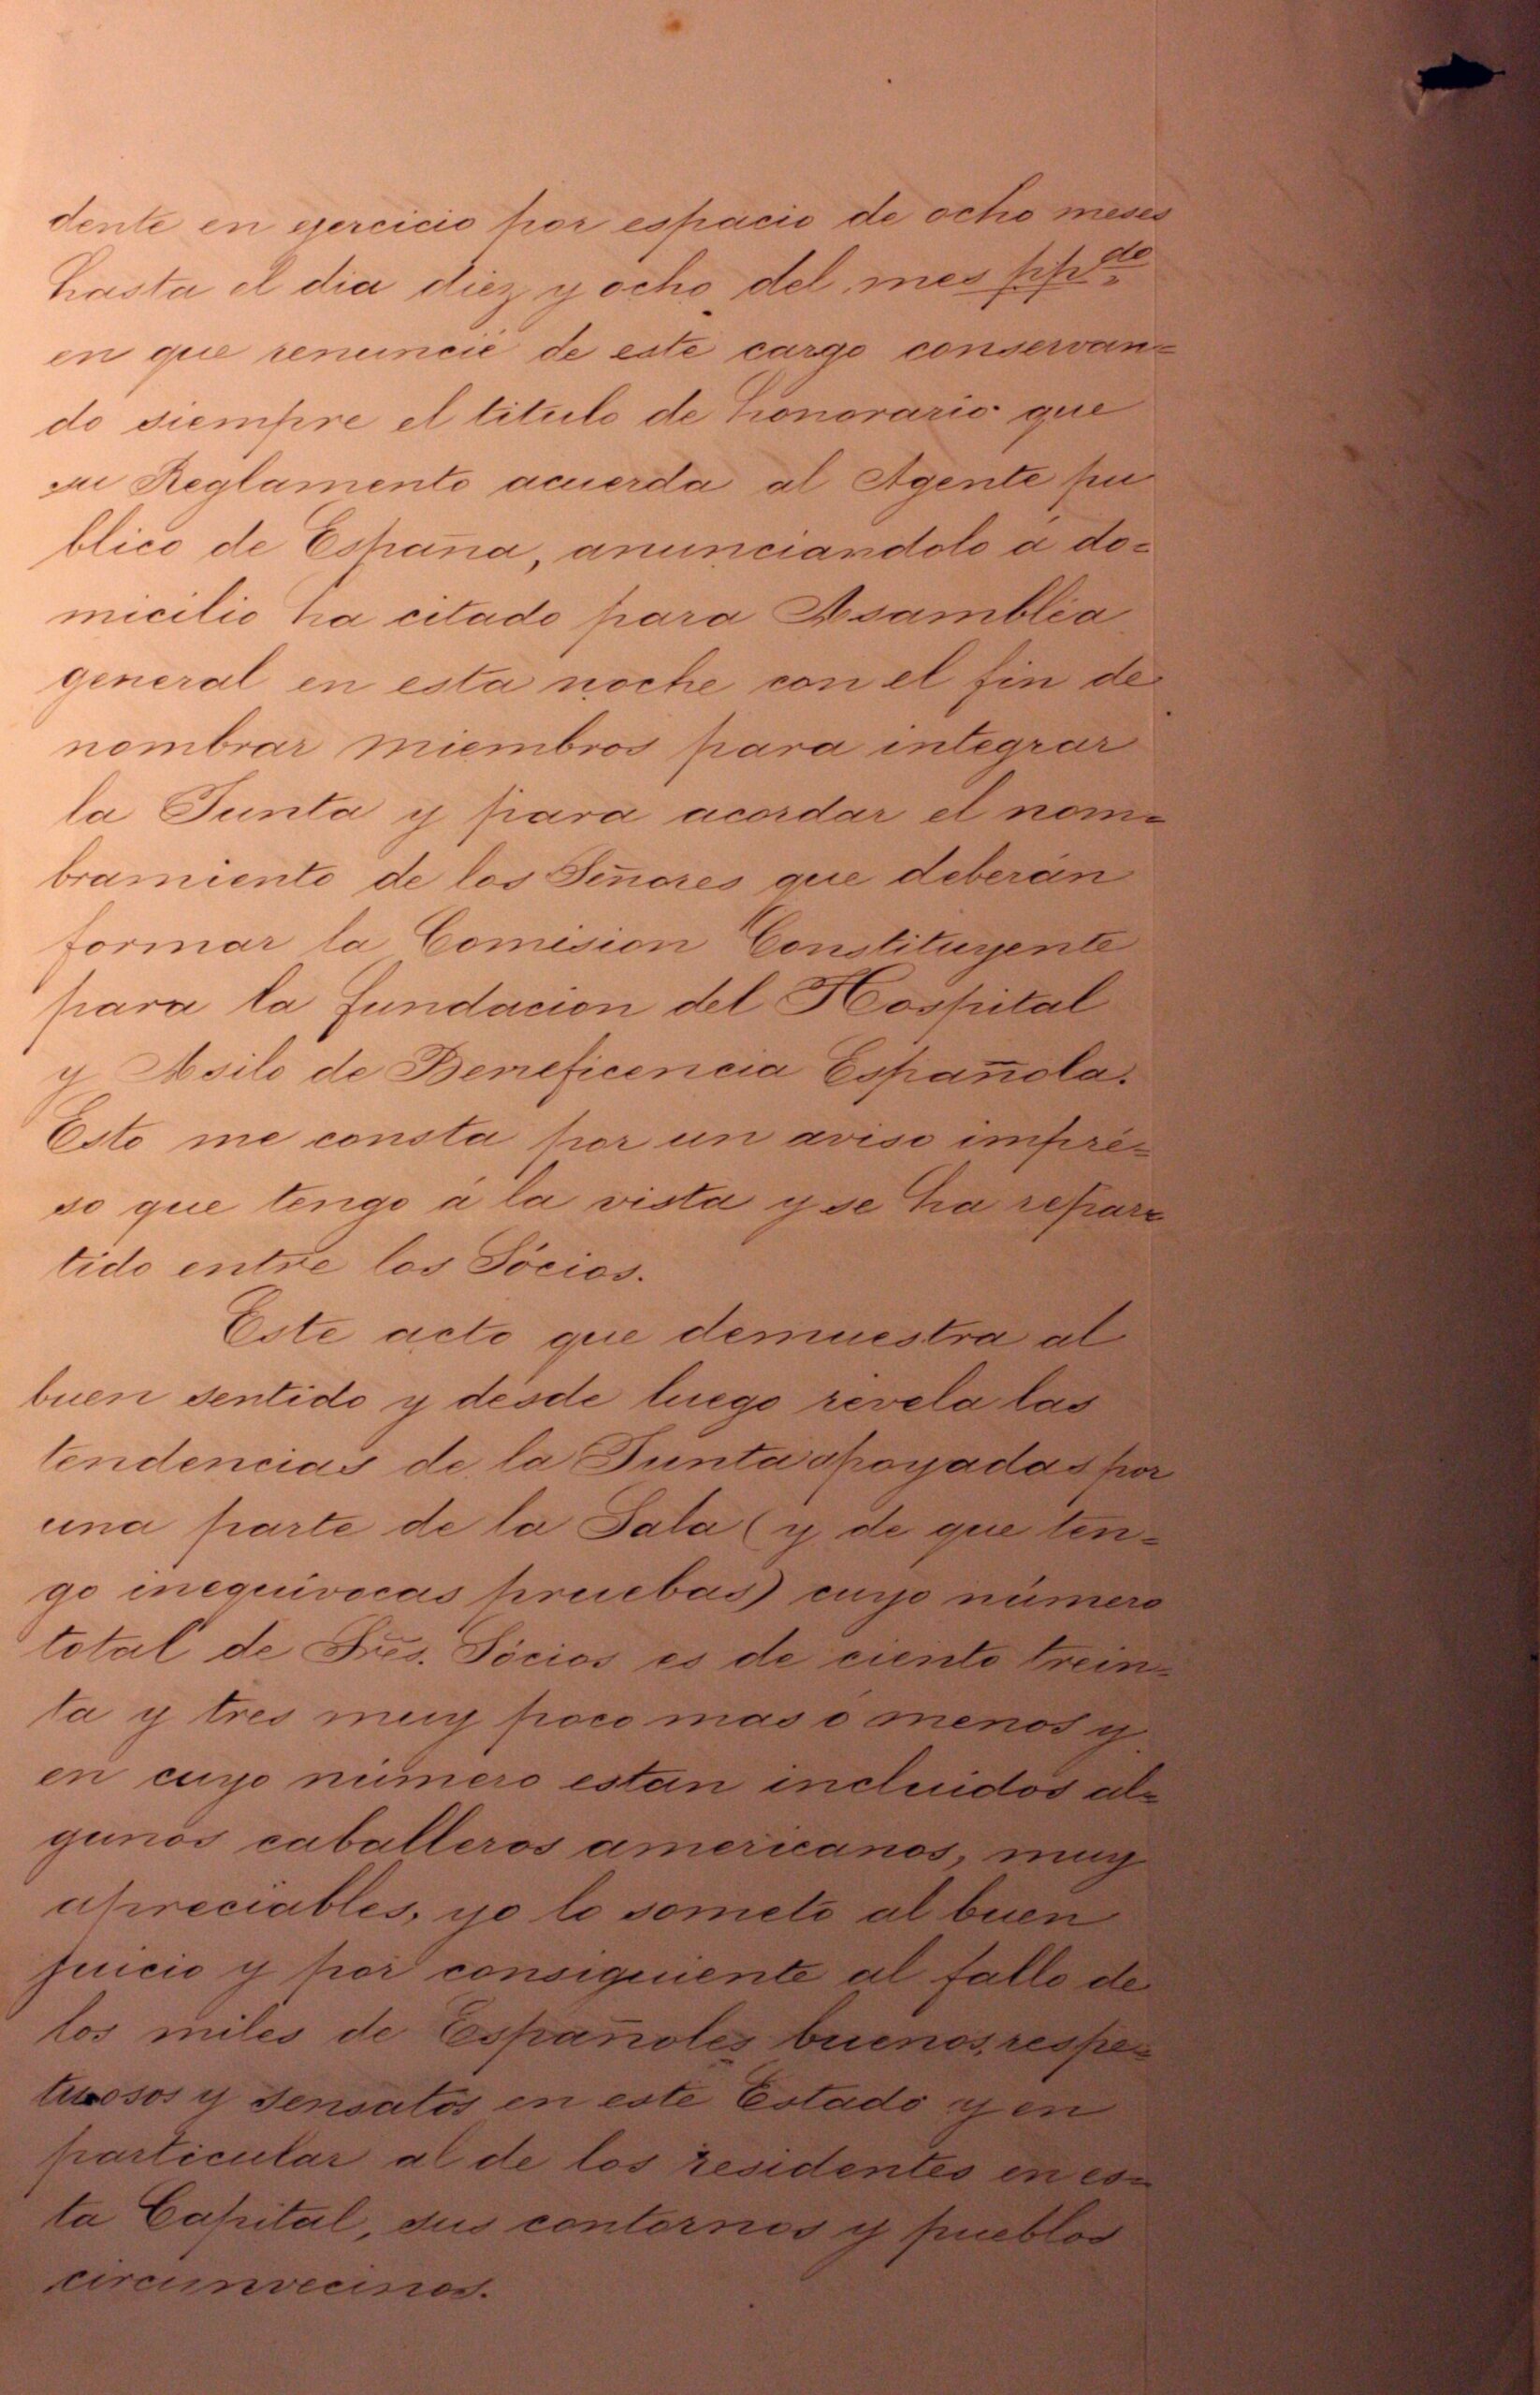 dente en ejercicio por espacio de ocho meses
hasta el dia diez y ocho del mes ppdo
en que renuncié de este cargo conservan=
do siempre el titulo de honorario que
su Reglamento acuerda al Agente pu
blico de España, anunciandolo á do=
micilio ha citado para Asambléa
general en esta noche con el fin de
nombrar miembros para integrar
la Junta y para acordar el nom=
bramiento de los Señores que deberán
formar la Comision Constituyente
para la fundacion del Hospital
y Asilo de Beneficencia Española.
Esto me consta por un aviso impre=
so que tengo á la vista y se ha repar=
tido entre los Sócios.
Este acto que demuestra al
buen sentido y desde luego revela las
tendencias de la Junta apoyadas por
una parte de la Sala (y de que ten=
go inequivocas pruebas) cuyo número
total de Sres. Sócios es de ciento trein=
ta y tres muy poco mas ó menos y
en cuyo número estan incluidos al=
gunos caballeros americanos, muy
apreciables, yo lo someto al buen
juicio y por consiguiente al fallo de
los miles de Españoles buenos, respe=
tuosos y sensatos en este Estado y en
particular al de los residentes en es=
ta Capital, sus contornos y pueblos
circunvecinos.